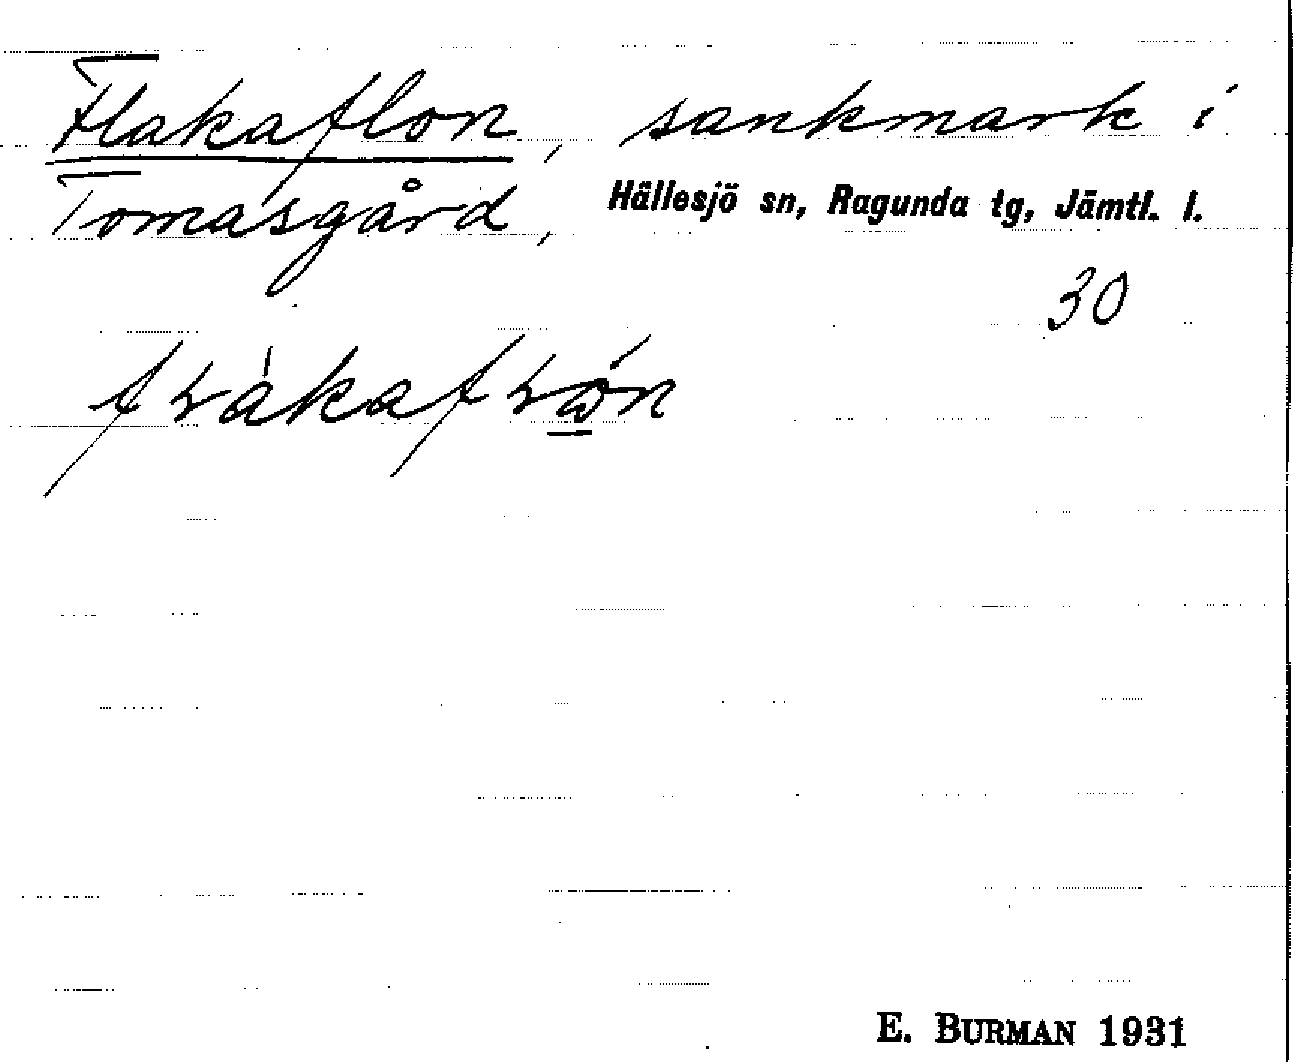 Flakaflon, sankmark i
Tomasgård, Hällesjö sn, Ragunda tg, Jämtl. l.
30
E. BURMAN 1931